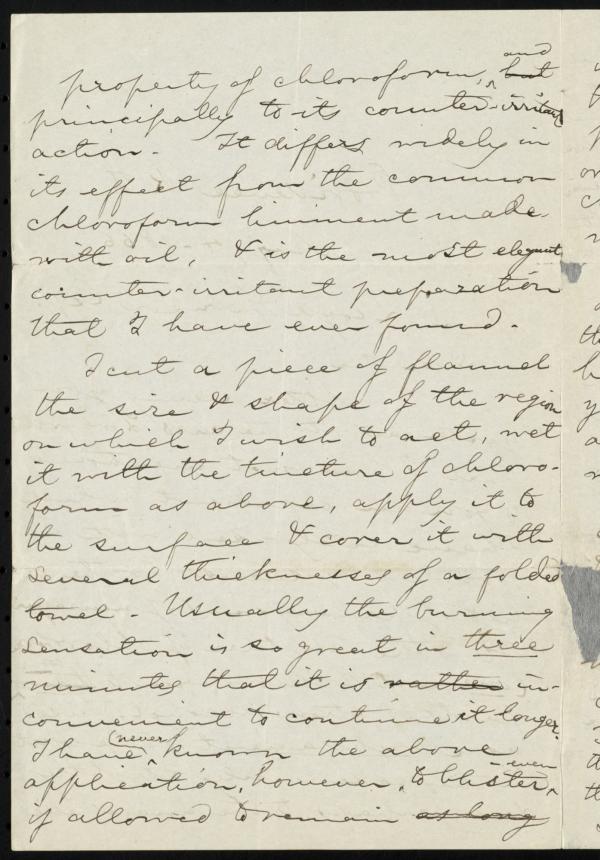 property of chloroform, ^and ~~but~~
principally to its counter-irritant
action. It differs widely in
its effect from the common
chloroform liniment made
with oil, & is the most elegant
counter-irritant preparation
that I have ever found.
I cut a piece of flannel
the size & shape of the region
on which I wish to act, wet
it with the tincture of chloro-
form as above, apply it to
the surface & cover it with
several thicknesses of a folded
towel. Usually the burning
sensation is so great in three
minutes that it is ~~rather~~ in-
convenient to continue it longer.
I have ^never known the above
application, however, to blister, ^even
if allowed to remain ~~as long~~